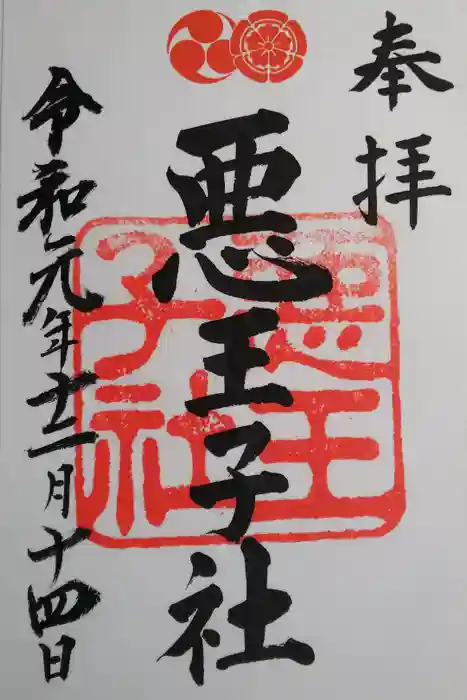 奉拝
悪王子社
悪王
子社
令和元年十二月十四日